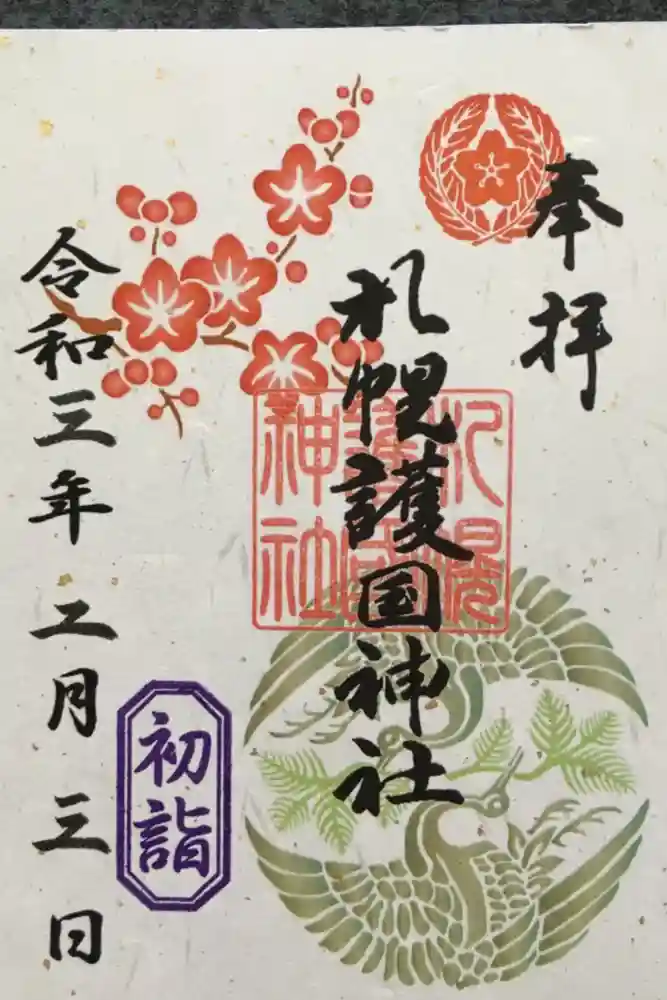 奉拝
札幌護国神社
札幌
護國
神社
令和三年二月三日
初詣